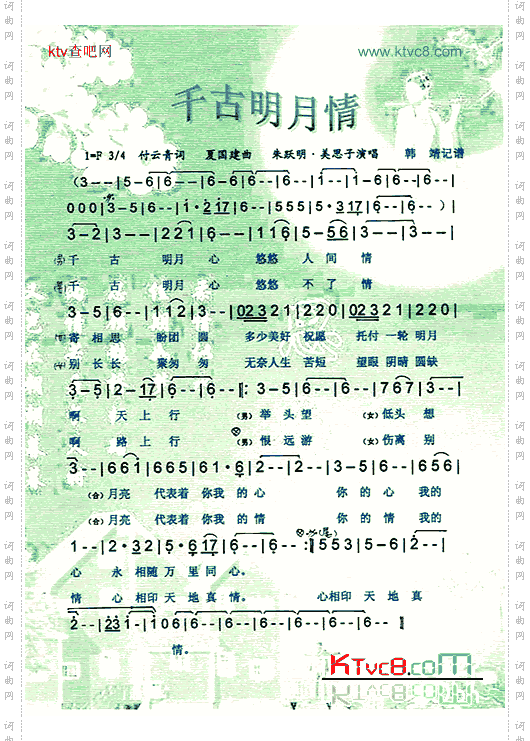 ktv查吧网
www.ktvc8.com
千古明月情
1=F 3/4 付云青词 夏国建曲 朱跃明·美思子演唱 韩 靖记谱
(3--|5-6|6--|6-6|6--|6--|1--|1-6|6--|
000|3-5|6--|1·217|6--|555|5·317|6--|6--)|
3-2|3--|221|6--|116|5-56|3--|3--|
(男)千 古 明月 心 悠悠 人 间 情
(男)千 古 明月 心 悠悠 不 了 情
3-5|6--|112|3--|02321|220|02321|220|
寄 相思 盼团 圆 多少美好 祝愿 托付 一轮 明月
别 长长 聚匆 匆 无奈人生 苦短 望眼 阴晴 圆缺
3-5|2-17|6--|6--|:3-5|6--|767|3--|
啊 天上行 (男)举头望 (女)低头 想
啊 路上行 (男)恨远游 (女)伤离 别
3--|661|665|61·6|2--|2--|3-5|6--|656|
(合)月亮 代表着 你我 的心 你的心 我的
(合)月亮 代表着 你我 的情 你的情 我的
1--|2·32|5·617|6--|6--:|553|5-6|2--|
心 永 相随 万里 同心。
情 心 相印 天地 真情。 心相印 天 地 真
2--|231|-106|6--|6--|6--|6--|6--|
情。
KTvc8.com
词曲网
词曲网
词曲网
词曲网
词曲网
词曲网
词曲网
词曲网
词曲网
词曲网
词曲网
词曲网